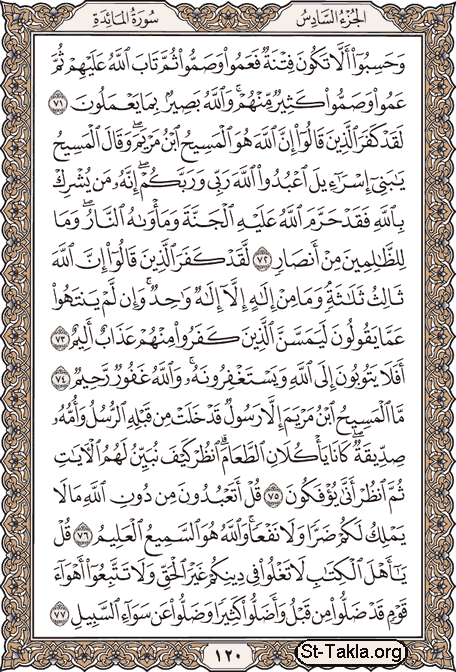 الجزء السادس
سورة المائدة
وَحَسِبُوٓا۟ أَلَّا تَكُونَ فِتْنَةٌ فَعَمُوا۟ وَصَمُّوا۟ ثُمَّ تَابَ ٱللَّهُ عَلَيْهِمْ ثُمَّ
عَمُوا۟ وَصَمُّوا۟ كَثِيرٌ مِّنْهُمْ ۚ وَٱللَّهُ بَصِيرٌۢ بِمَا يَعْمَلُونَ ٧١
لَقَدْ كَفَرَ ٱلَّذِينَ قَالُوٓا۟ إِنَّ ٱللَّهَ هُوَ ٱلْمَسِيحُ ٱبْنُ مَرْيَمَ ۖ وَقَالَ ٱلْمَسِيحُ
يَٰبَنِىٓ إِسْرَٰٓءِيلَ ٱعْبُدُوا۟ ٱللَّهَ رَبِّى وَرَبَّكُمْ ۖ إِنَّهُۥ مَن يُشْرِكْ
بِٱللَّهِ فَقَدْ حَرَّمَ ٱللَّهُ عَلَيْهِ ٱلْجَنَّةَ وَمَأْوَىٰهُ ٱلنَّارُ ۖ وَمَا
لِلظَّٰلِمِينَ مِنْ أَنصَارٍ ٧٢ لَّقَدْ كَفَرَ ٱلَّذِينَ قَالُوٓا۟ إِنَّ ٱللَّهَ
ثَالِثُ ثَلَٰثَةٍ ۘ وَمَا مِنْ إِلَٰهٍ إِلَّآ إِلَٰهٌ وَٰحِدٌ ۚ وَإِن لَّمْ يَنتَهُوا۟
عَمَّا يَقُولُونَ لَيَمَسَّنَّ ٱلَّذِينَ كَفَرُوا۟ مِنْهُمْ عَذَابٌ أَلِيمٌ ٧٣
أَفَلَا يَتُوبُونَ إِلَى ٱللَّهِ وَيَسْتَغْفِرُونَهُۥ ۚ وَٱللَّهُ غَفُورٌ رَّحِيمٌ ٧٤
مَّا ٱلْمَسِيحُ ٱبْنُ مَرْيَمَ إِلَّا رَسُولٌ قَدْ خَلَتْ مِن قَبْلِهِ ٱلرُّسُلُ وَأُمُّهُۥ
صِدِّيقَةٌ ۖ كَانَا يَأْكُلَانِ ٱلطَّعَامَ ۗ ٱنظُرْ كَيْفَ نُبَيِّنُ لَهُمُ ٱلْءَايَٰتِ
ثُمَّ ٱنظُرْ أَنَّىٰ يُؤْفَكُونَ ٧٥ قُلْ أَتَعْبُدُونَ مِن دُونِ ٱللَّهِ مَا لَا
يَمْلِكُ لَكُمْ ضَرًّا وَلَا نَفْعًا ۚ وَٱللَّهُ هُوَ ٱلسَّمِيعُ ٱلْعَلِيمُ ٧٦ قُلْ
يَٰٓأَهْلَ ٱلْكِتَٰبِ لَا تَغْلُوا۟ فِى دِينِكُمْ غَيْرَ ٱلْحَقِّ وَلَا تَتَّبِعُوٓا۟ أَهْوَآءَ
قَوْمٍ قَدْ ضَلُّوا۟ مِن قَبْلُ وَأَضَلُّوا۟ كَثِيرًا وَضَلُّوا۟ عَن سَوَآءِ ٱلسَّبِيلِ ٧٧
١٢٠
St-Takla.org